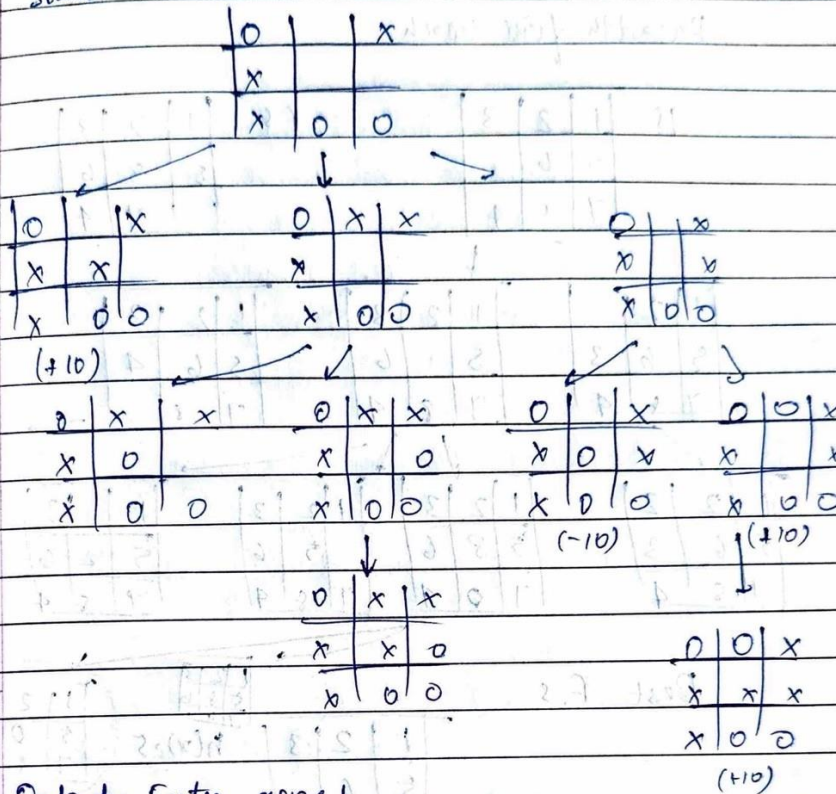 O X
X
X O O
O X
X X
X O O
(+10)
O X X
X
X O O
O X
X X
X O O
O X X
X O
X O O
O X X
X O
X O O
O X
X O X
X O O
(-10)
O O X
X X
X O O
(+10)
O X X
X X O
X O O
O O X
X X X
X O O
(+10)